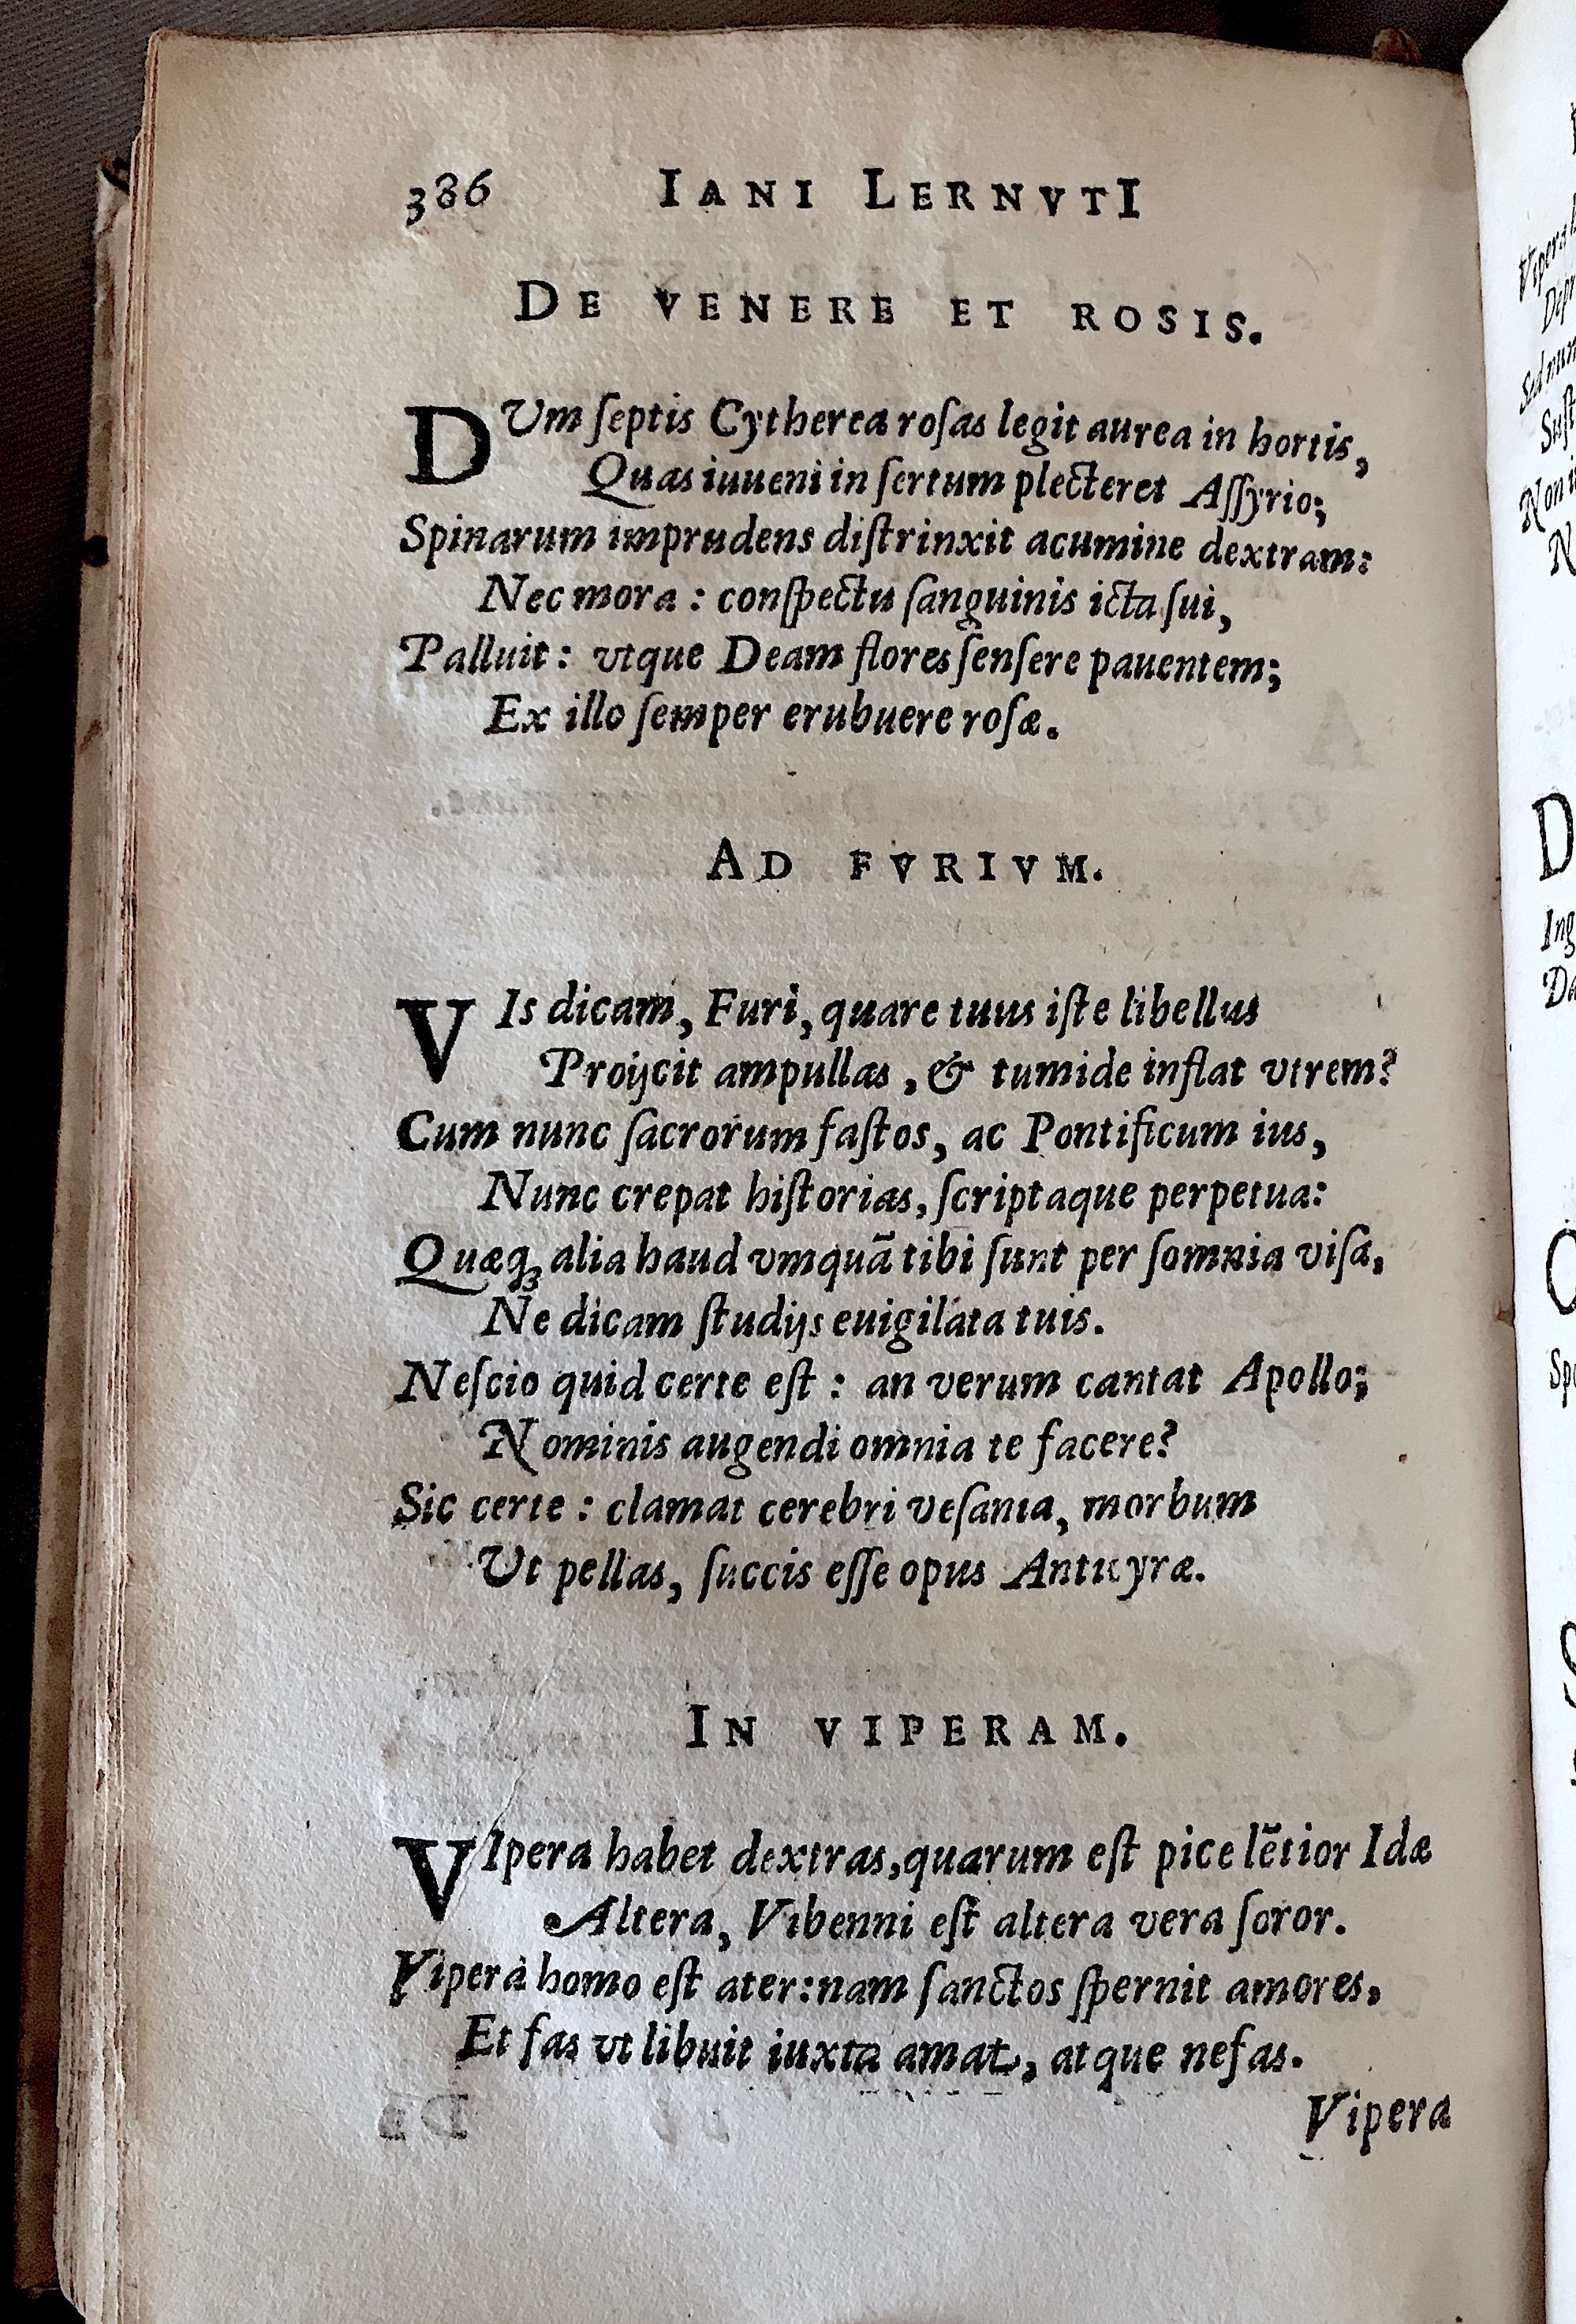 386 IANI LERNVTI
DE VENERE ET ROSIS.
DVm ſeptis Cytherea roſas legit aurea in hortis,
Quas iuueni in ſertum plecteret Aſſyrio;
Spinarum imprudens diſtrinxit acumine dextram:
Nec mora : conſpectu ſanguinis icta ſui,
Palluit: vtque Deam flores ſenſere pauentem;
Ex illo ſemper erubuere roſæ.
AD FVRIVM.
VIs dicam, Furi, quare tuus iſte libellus
Proijcit ampullas, & tumide inflat vtrem?
Cum nunc ſacrorum faſtos, ac Pontificum ius,
Nunc crepat hiſtorias, ſcriptaque perpetua:
Quæq; alia haud vmquā tibi ſunt per ſomnia viſa,
Ne dicam ſtudijs euigilata tuis.
Neſcio quid certe eſt : an verum cantat Apollo;
Nominis augendi omnia te facere?
Sic certe : clamat cerebri veſania, morbum
Vt pellas, ſuccis eſſe opus Anticyræ.
IN VIPERAM.
VIpera habet dextras, quarum eſt pice lētior Idæ
Altera, Vibenni eſt altera vera ſoror.
Vipera homo eſt ater: nam ſanctos ſpernit amores,
Et fas vt libuit iuxta amat, atque nefas.
Vipera
Vipera
Sed
Non
N
D
Ing
Da